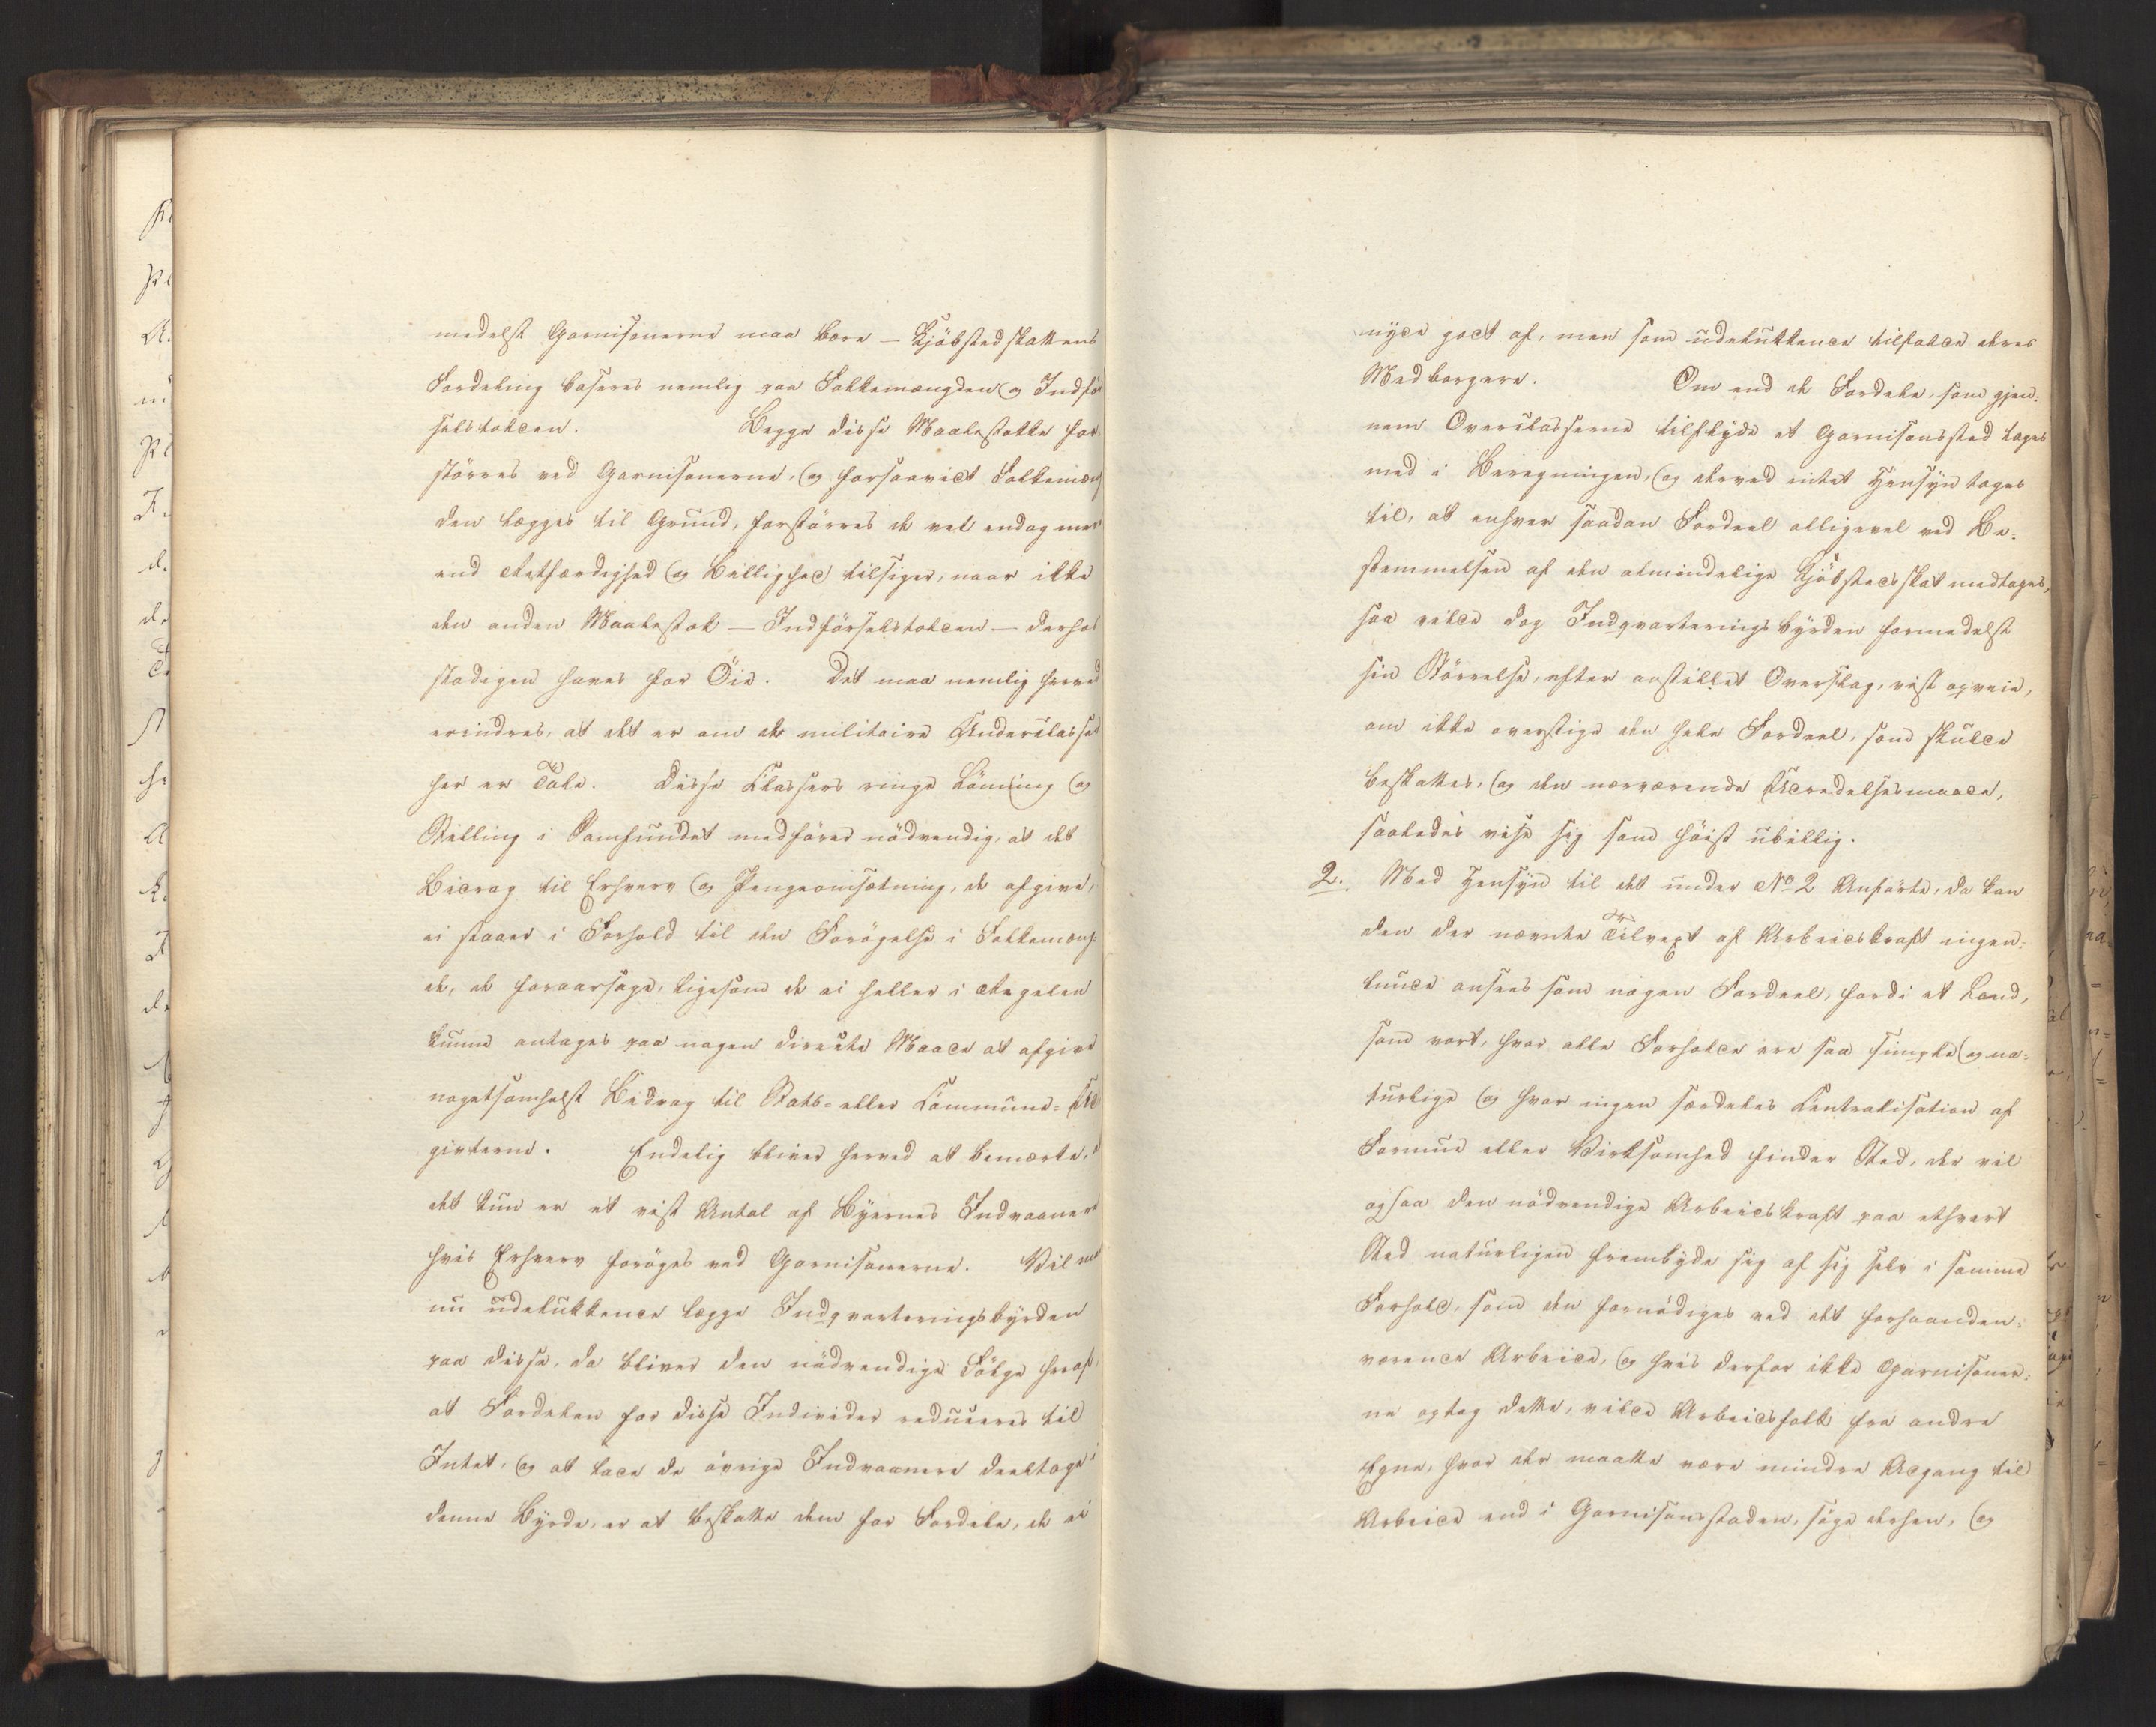 medelst Garnisonerne maa bære – Kjöbstedskattens
Fordeling baseres nemlig paa Folkemængden og Indför
selstolden. Begge disse Maalestokke for-
störres ved Garnisonerne, og forsaavidt Folkemæng
den lægges til Grund, forstörres de vel endog mere
end Retfærdighed og Billighed tilsiger, naar ikke
den anden Maalestok – Indförselstolden – derhos
stadigen haves for Öie. Det maa nemlig herved
erindres, at det er om de militaire Underclasser
her er Tale. Disse Classers ringe Lönning og
Stilling i Samfundet medförer nödvendig, at det
Bidrag til Erhverv og Pengeomsætning, de afgive,
ei staaer i Forhold til den Forögelse i Folkemæng-
de, de foraarsage, ligesom de ei heller i Regelen
kunne antages paa nogen directe Maade at afgive
nogetsomhelst Bidrag til Stats- eller Commune-Ud
givterne. Endelig bliver herved at bemærke,
det kun er et vist Antal af Byernes Indvaanere
hvis Erhverv foröges ved Garnisonerne. Vil man
nu udelukkende lægge Indqvarteringsbyrden
paa disse, da bliver den nödvendige Fölge heraf,
at Fordelen for disse Individer reduceres til
Intet, og at lade de övrige Indvaanere deeltage i
denne Byrde, er at beskatte dem for Fordele, de ei
nyde godt af, men som udelukkende tilfalde deres
Medborgere. Om end de Fordele, som gjen-
nem Overclasserne tilflyde et Garnisonssted tages
med i Beregningen, og derved intet Hensyn tages
til, at enhver saadan Fordeel alligevel ved Be-
stemmelsen af den almindelige Kjöbstedsskat medtages,
saa vilde dog Indqvarteringsbyrden formedelst
sin Störrelse, efter anstillet Overslag, vist opveie,
om ikke overstige den hele Fordeel, som skulde
beskattes, og den nærværende Udredelsesmaade,
saaledes vise sig som höist ubillig.
2. Med Hensyn til det under No 2 Anförte, da kan
den der nævnte Tilvext af Arbeidskraft ingen-
lunde ansees som nogen Fordeel, fordi et Land,
som vort, hvor alle Forholde ere saa simple og na-
turlige og hvor ingen særdeles Centralisation af
Formue eller Virksomhed finder Sted, der vil
ogsaa den nödvendige Arbeidskraft paa ethvert
Sted naturligen frembyde sig af sig selv i samme
Forhold, som den fornödiges ved det forhaanden-
værende Arbeide, og hvis derfor ikke Garnisoner-
ne optog dette, vilde Arbeidsfolk fra andre
Egne, hvor der maatte være mindre Adgang til
Arbeide end i Garnisonsstaden, söge derhen, og